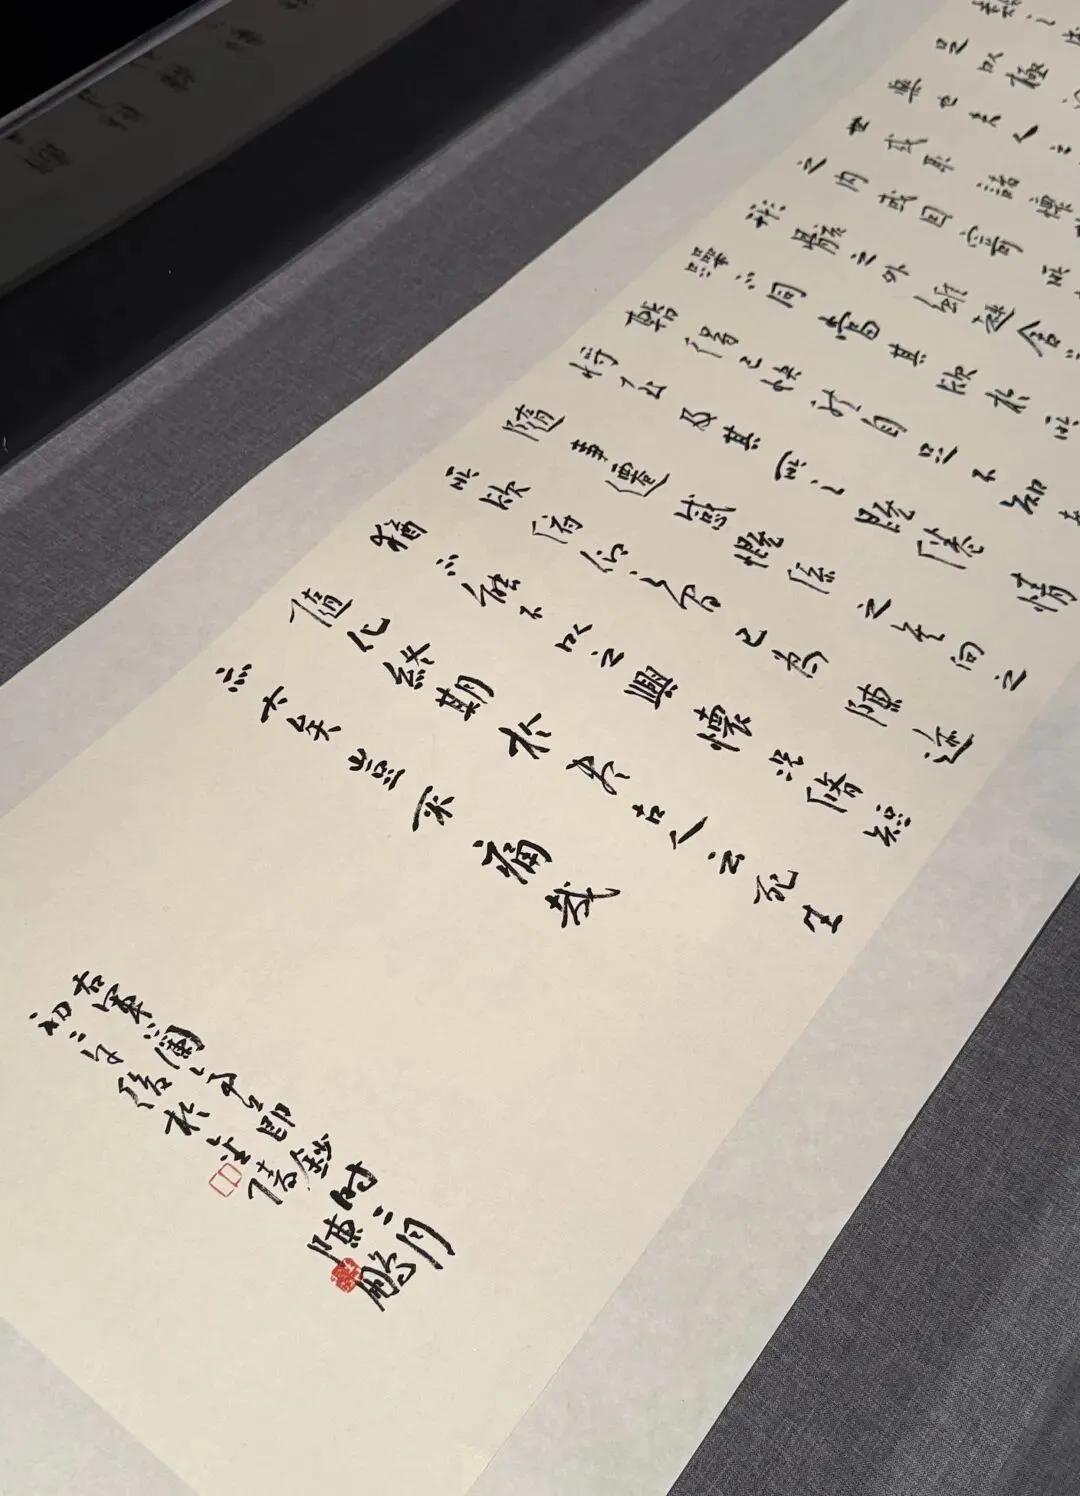 類之盛
足以極
樂也夫人之
世或取諸懷
之内或因寄所
形骸之外雖趣舍
躁不同當其欣於所
暫得己快然自足不知老
將至及其所之既倦情
隨事遷感慨係之矣向之
所欣俯仰之間已為陳迹
猶不能不以之興懷況脩短
隨化終期於盡古人云死生
亦大矣豈不痛哉
右軍蘭亭節鈔時二月
初二午後於金陵陳鵬